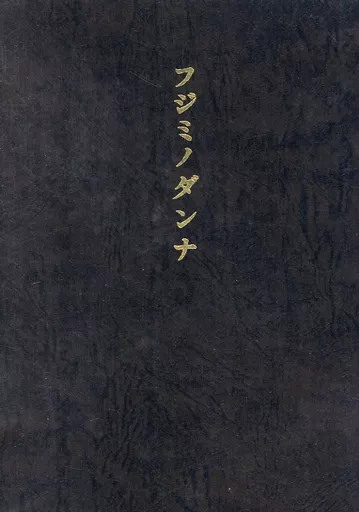 フジミノダンナ